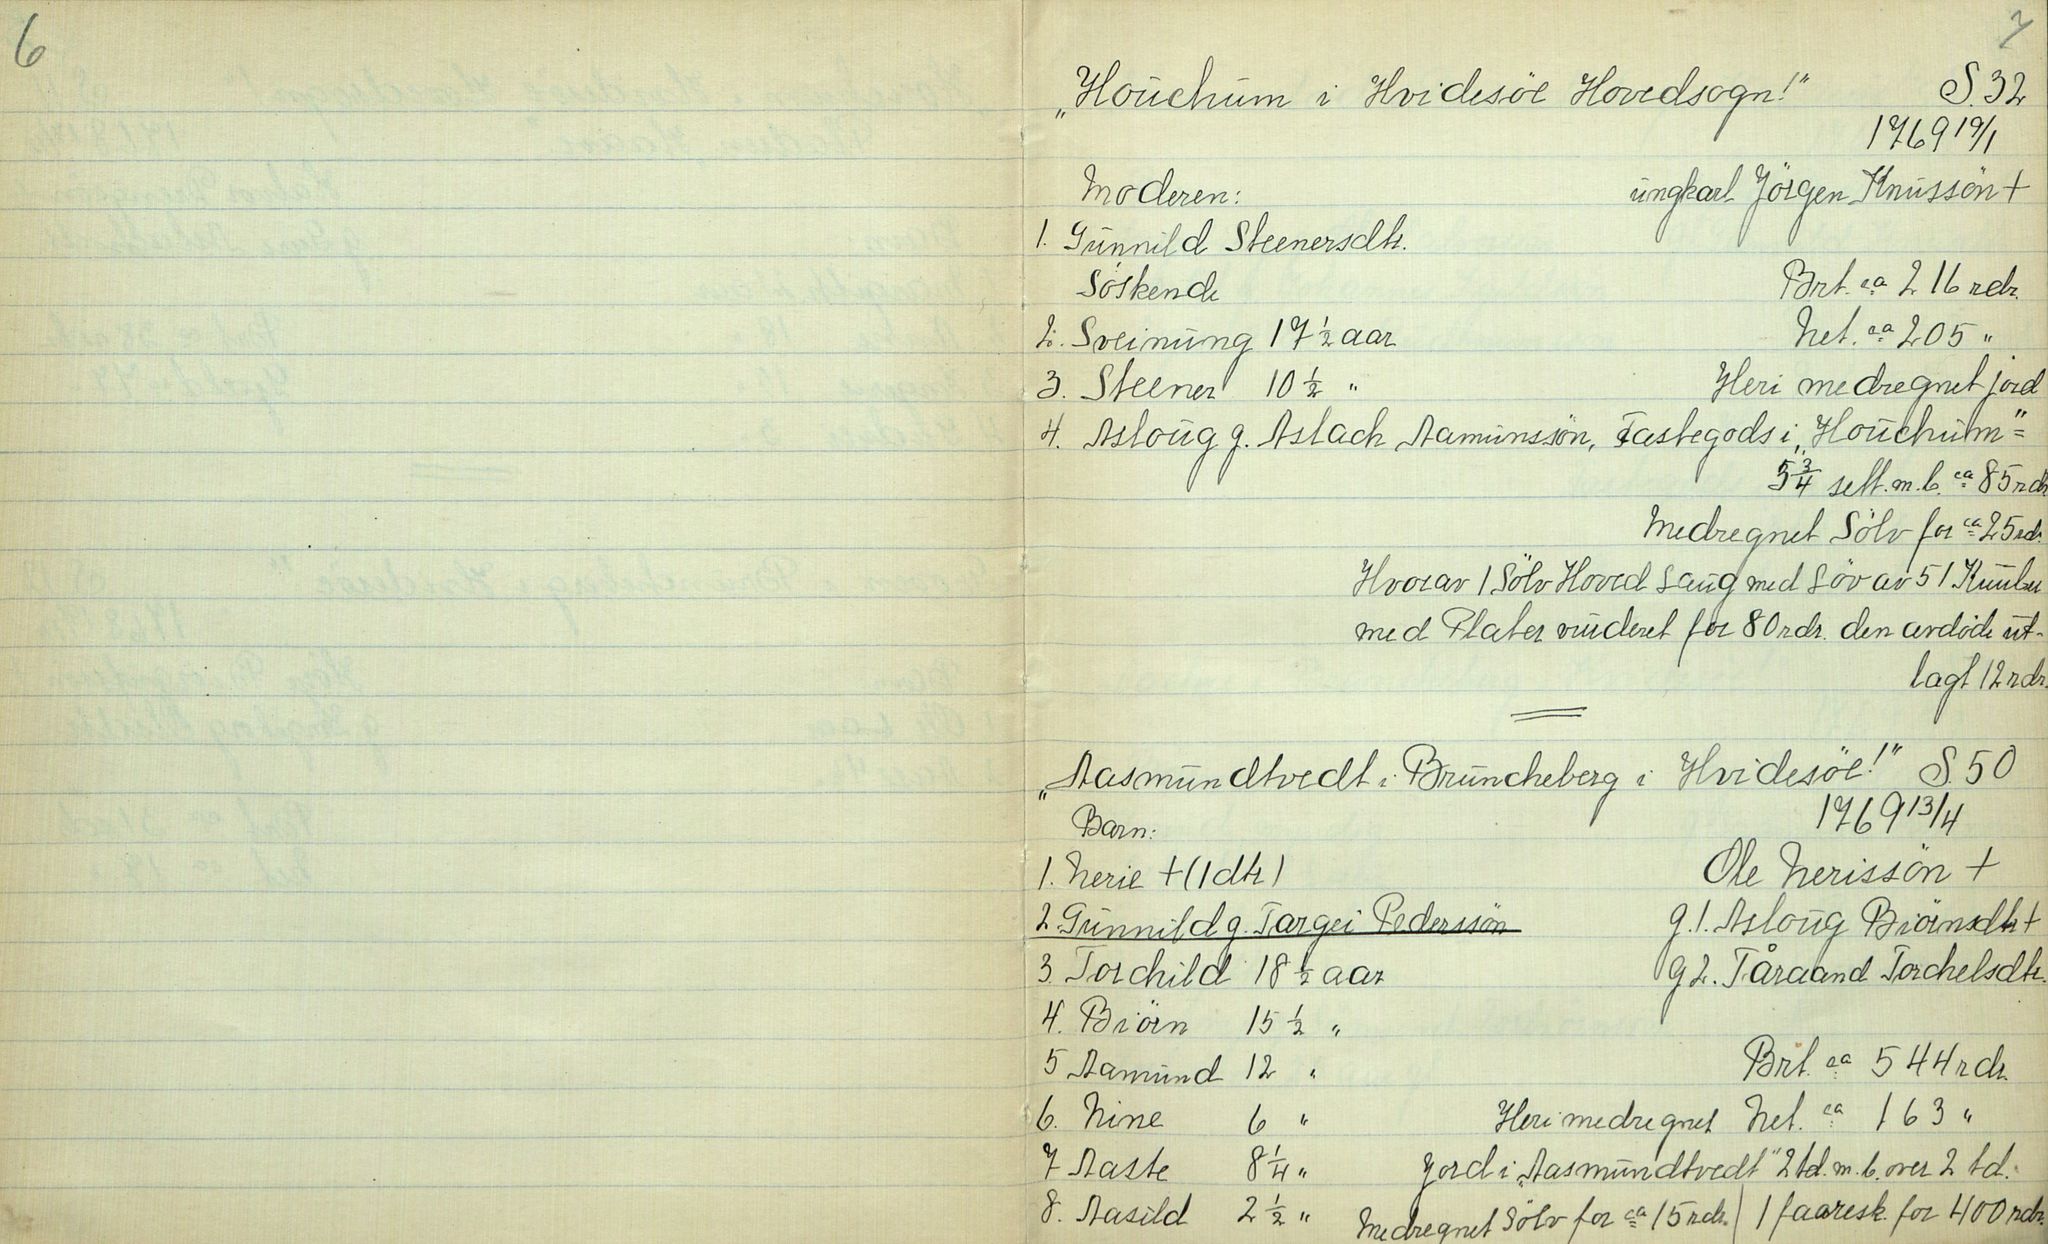 6
7
„Houchum i Hvidesöe Hovedsogn!" S. 32
1769 19/1
Moderen: ungkarl Jörgen Knussön +
1. Gunnild Steenersdtr.
Söskende Brt. ca 216 rdr.
2. Sveinung 17 1/2 aar Net. ca 205 "
3. Steener 10 1/2 " Heri medregnet jord
4. Asloug g. Aslach Aamunssön, Fastegods i „Houchum" =
5 3/4 sett. m. b. ca 85 rdr
Medregnet Sölv for ca 25 rdr.
Hvorav 1 Sölv Hoved Laug med Löv av 51
med Plater vuderet for 80 rdr. den avdöde ut-
lagt 12 rdr.
„Aasmundtvedt i Bruncheberg i Hvidesöe!" S. 50
1769 13/4
Barn:
1. Nerie + (1 dtr) Ole Nerissön +
2. Gunnild g. Targei Pederssön g. 1. Asloug Biörnsdtr +
3. Torchild 18 1/2 aar g 2. Tåraand Torchelsdtr.
4. Biörn 15 1/2 "
5 Aamund 12 " Brt. ca 544 rdr.
6. Nine 6 " Heri medregnet Net. ca 163 "
7 Aaste 8 1/4 " Jord i „Aasmundtvedt" 2 td. m. b. over 2 td.
8. Aasild 2 1/2 " Medregnet Sölv for ca 15 rdr. / 1 faaresk. for 400 rdr.